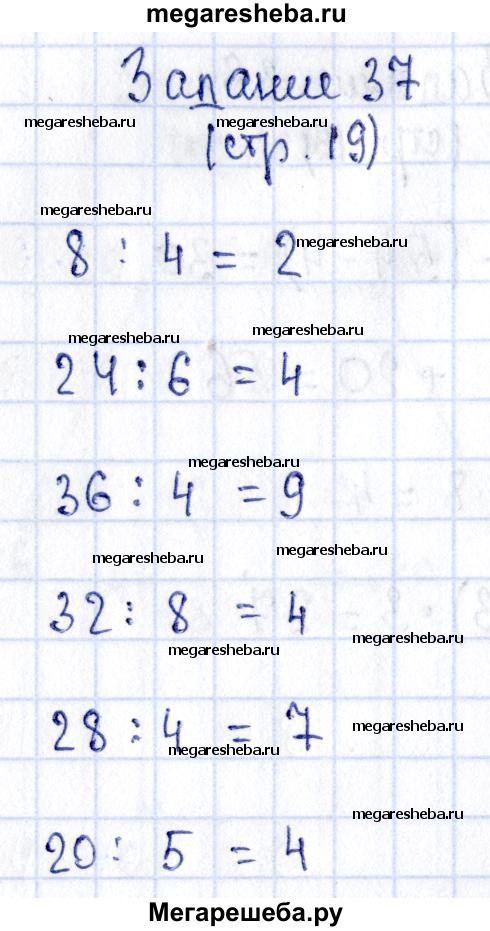 megaresheba.ru
Задание 37
megaresheba.ru megaresheba.ru
(стр. 19)
megaresheba.ru
8 : 4 = 2
megaresheba.ru
megaresheba.ru megaresheba.ru
24 : 6 = 4
megaresheba.ru
36 : 4 = 9
megaresheba.ru megaresheba.ru
32 : 8 = 4
megaresheba.ru
megaresheba.ru
28 : 4 = 7
megaresheba.ru
megaresheba.ru
megaresheba.ru
20 : 5 = 4
Мегарешеба.ру